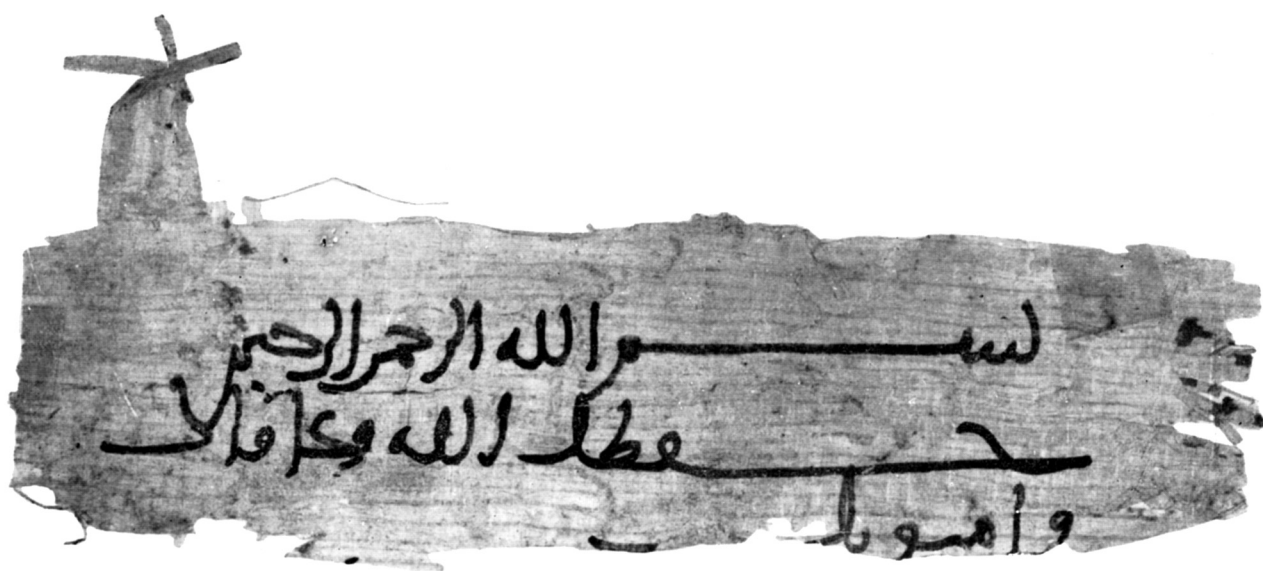 بسم الله الرحمن الرحيم
حفظك الله وعافاك
وامتع بك